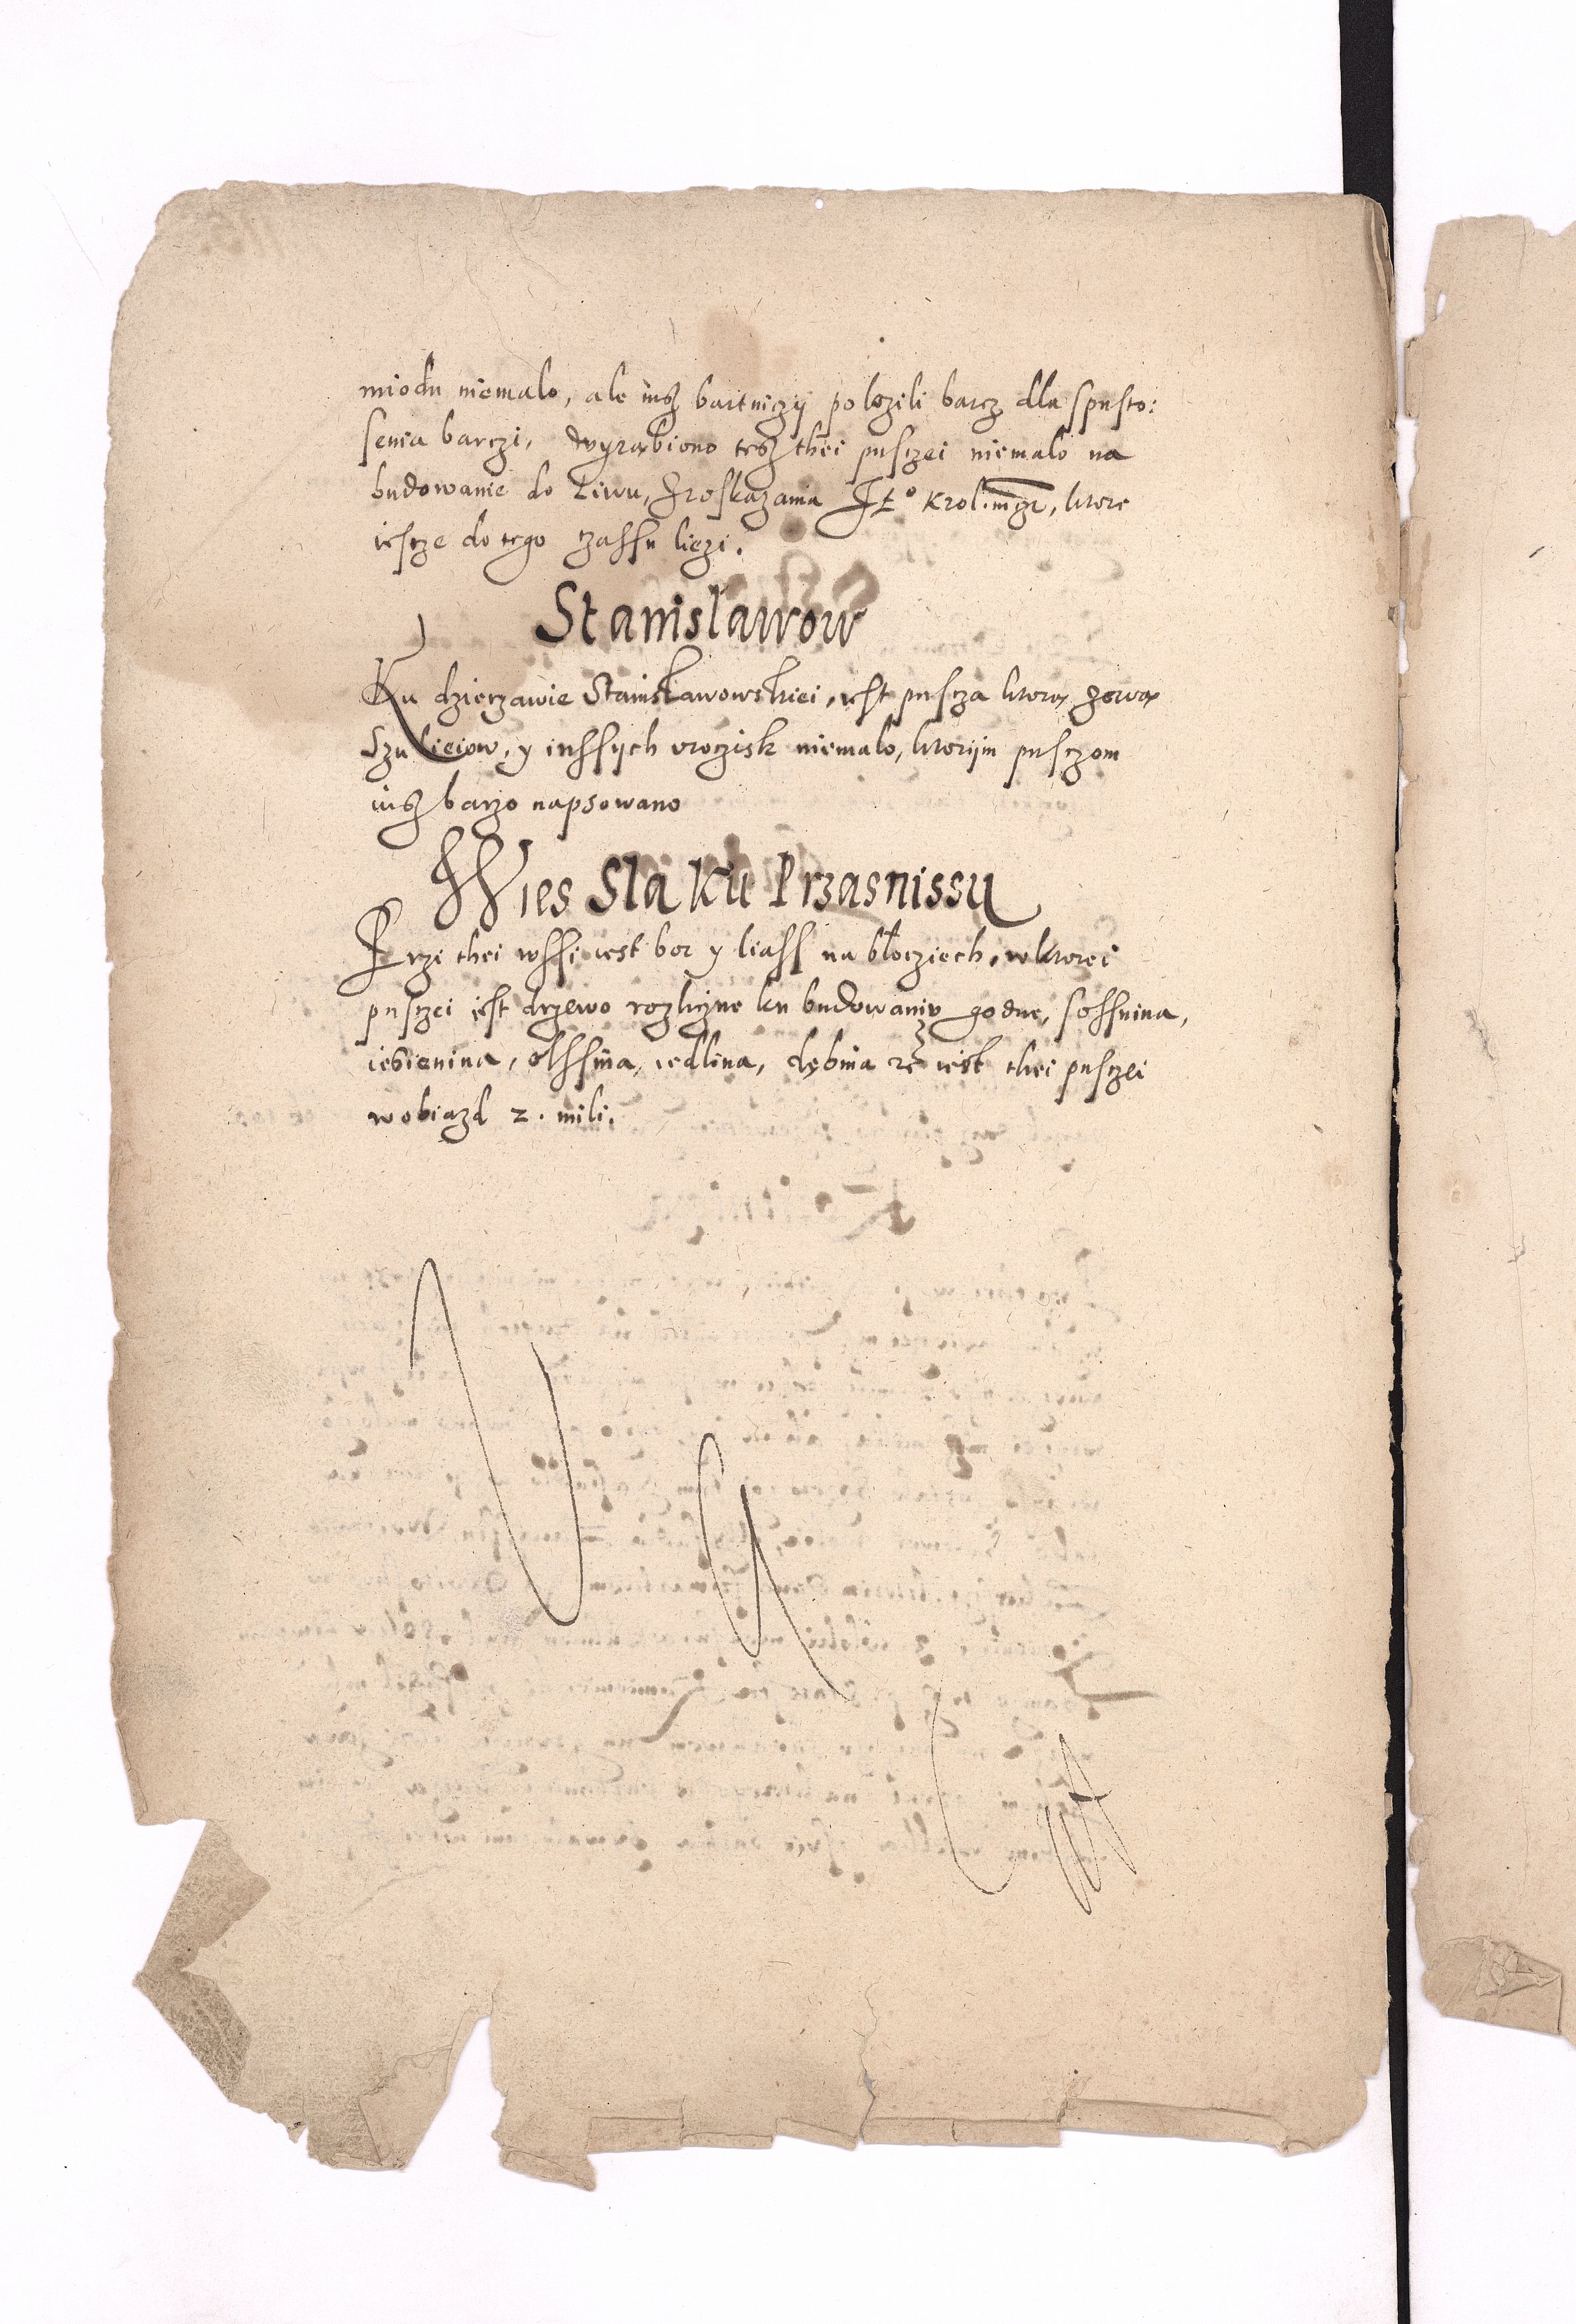 miodu niemalo, ale iusz bartniczÿ polozili barcz dla spusto:
senia barczi, Wyrąbiono tesz thei pusczei niemalo na
budowanie do Liwu, Zroskazania Je° Krol. mczi, ktore
iescze do tego czassu liezi.
Stanislawow
Ku dzierzawie Stanisławowskiei, iest puscza ktorą zową
Szuliciow, y inssÿch vroczisk niemalo, ktorÿm pusczom
iusz barzo napsowano
Wies Sla Ku Przasnissu
Przi thei wssi iest bor y liass na błocziech, w ktorei
pusczei iest drzewo rozliczne ku budowaniu godne, sossnina,
iesienina, olssina, iedlina, dębina etc iest thei pusczei
w obiazd 2. mili.